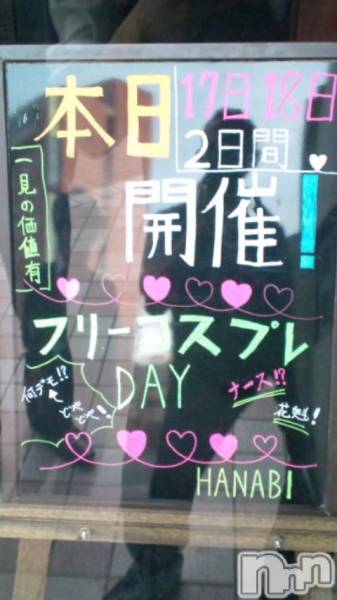 本日
17日18日
2日間
開催!
一見の価値有
フリーコスプレ
DAY
何デモ!?
どやどや!
ナース!?
花魁!
HANABI